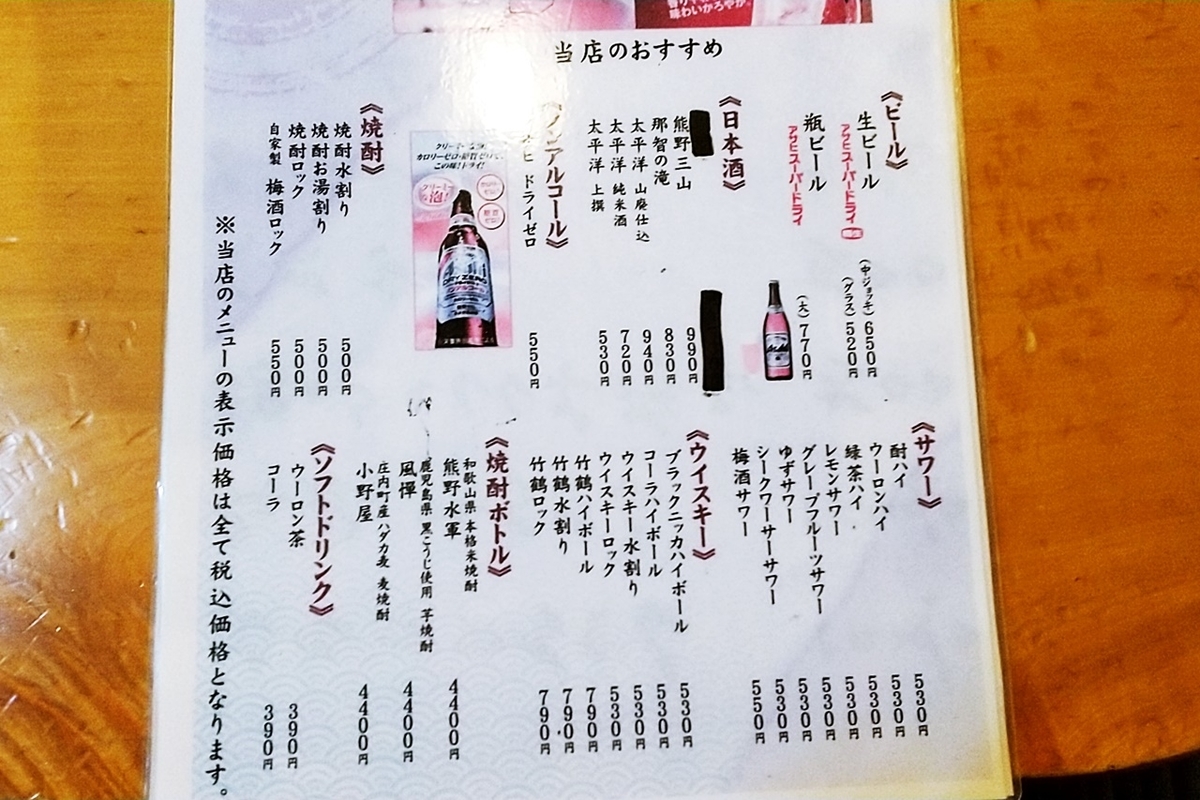 味わいかろやか。
当店のおすすめ
《ビール》
生ビール
アサヒスーパードライ
(中ジョッキ) 650円
(グラス) 520円
瓶ビール
アサヒスーパードライ
(大) 770円
《日本酒》
熊野三山 990円
那智の滝 830円
太平洋 山廃仕込 940円
太平洋 純米酒 720円
太平洋 上撰 530円
《ノンアルコール》
ドライゼロ 550円
カロリーゼロ・糖質ゼロで、
この味!ドライ!
クリーミーな
泡!
DRY ZERO
《焼酎》
焼酎水割り 500円
焼酎お湯割り 500円
焼酎ロック 500円
自家製 梅酒ロック 550円
《サワー》
酎ハイ 530円
ウーロンハイ 530円
緑茶ハイ 530円
レモンサワー 530円
グレープフルーツサワー 530円
ゆずサワー 530円
シークワーサーサワー 530円
梅酒サワー 550円
《ウイスキー》
ブラックニッカハイボール 530円
コーラハイボール 530円
ウイスキー水割り 530円
ウイスキーロック 530円
竹鶴ハイボール 790円
竹鶴水割り 790円
竹鶴ロック 790円
《焼酎ボトル》
和歌山県 本格米焼酎
熊野水軍 4400円
鹿児島県 黒こうじ使用 芋焼酎
風憚 4400円
庄内町産 ハダカ麦 麦焼酎
小野屋 4400円
《ソフトドリンク》
ウーロン茶 390円
コーラ 390円
※当店のメニューの表示価格は全て税込価格となります。